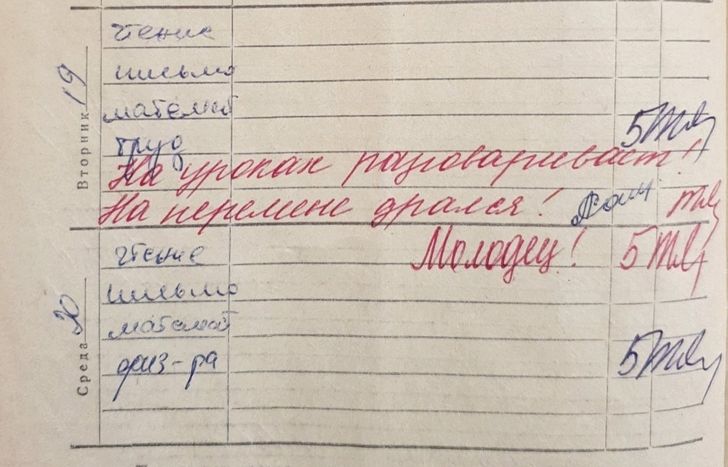 Вторник 19
чтение
письмо
математ
труд 5
На уроках разговаривает!
На перемене дрался!
Среда 20
чтение Молодец! 5
письмо
математ
физ-ра 5